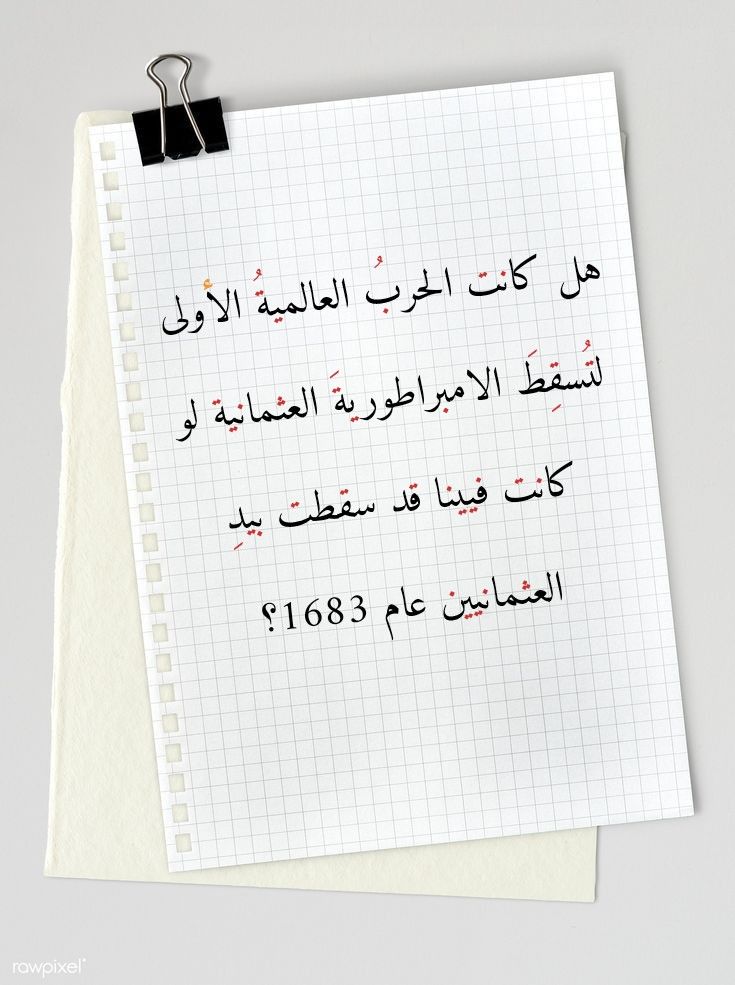 هل كانت الحربُ العالميةُ الأولى
لتُسقِطَ الامبراطوريةَ العثمانية لو
كانت فيينا قد سقطت بيدِ
العثمانيين عام 1683؟
rawpixel